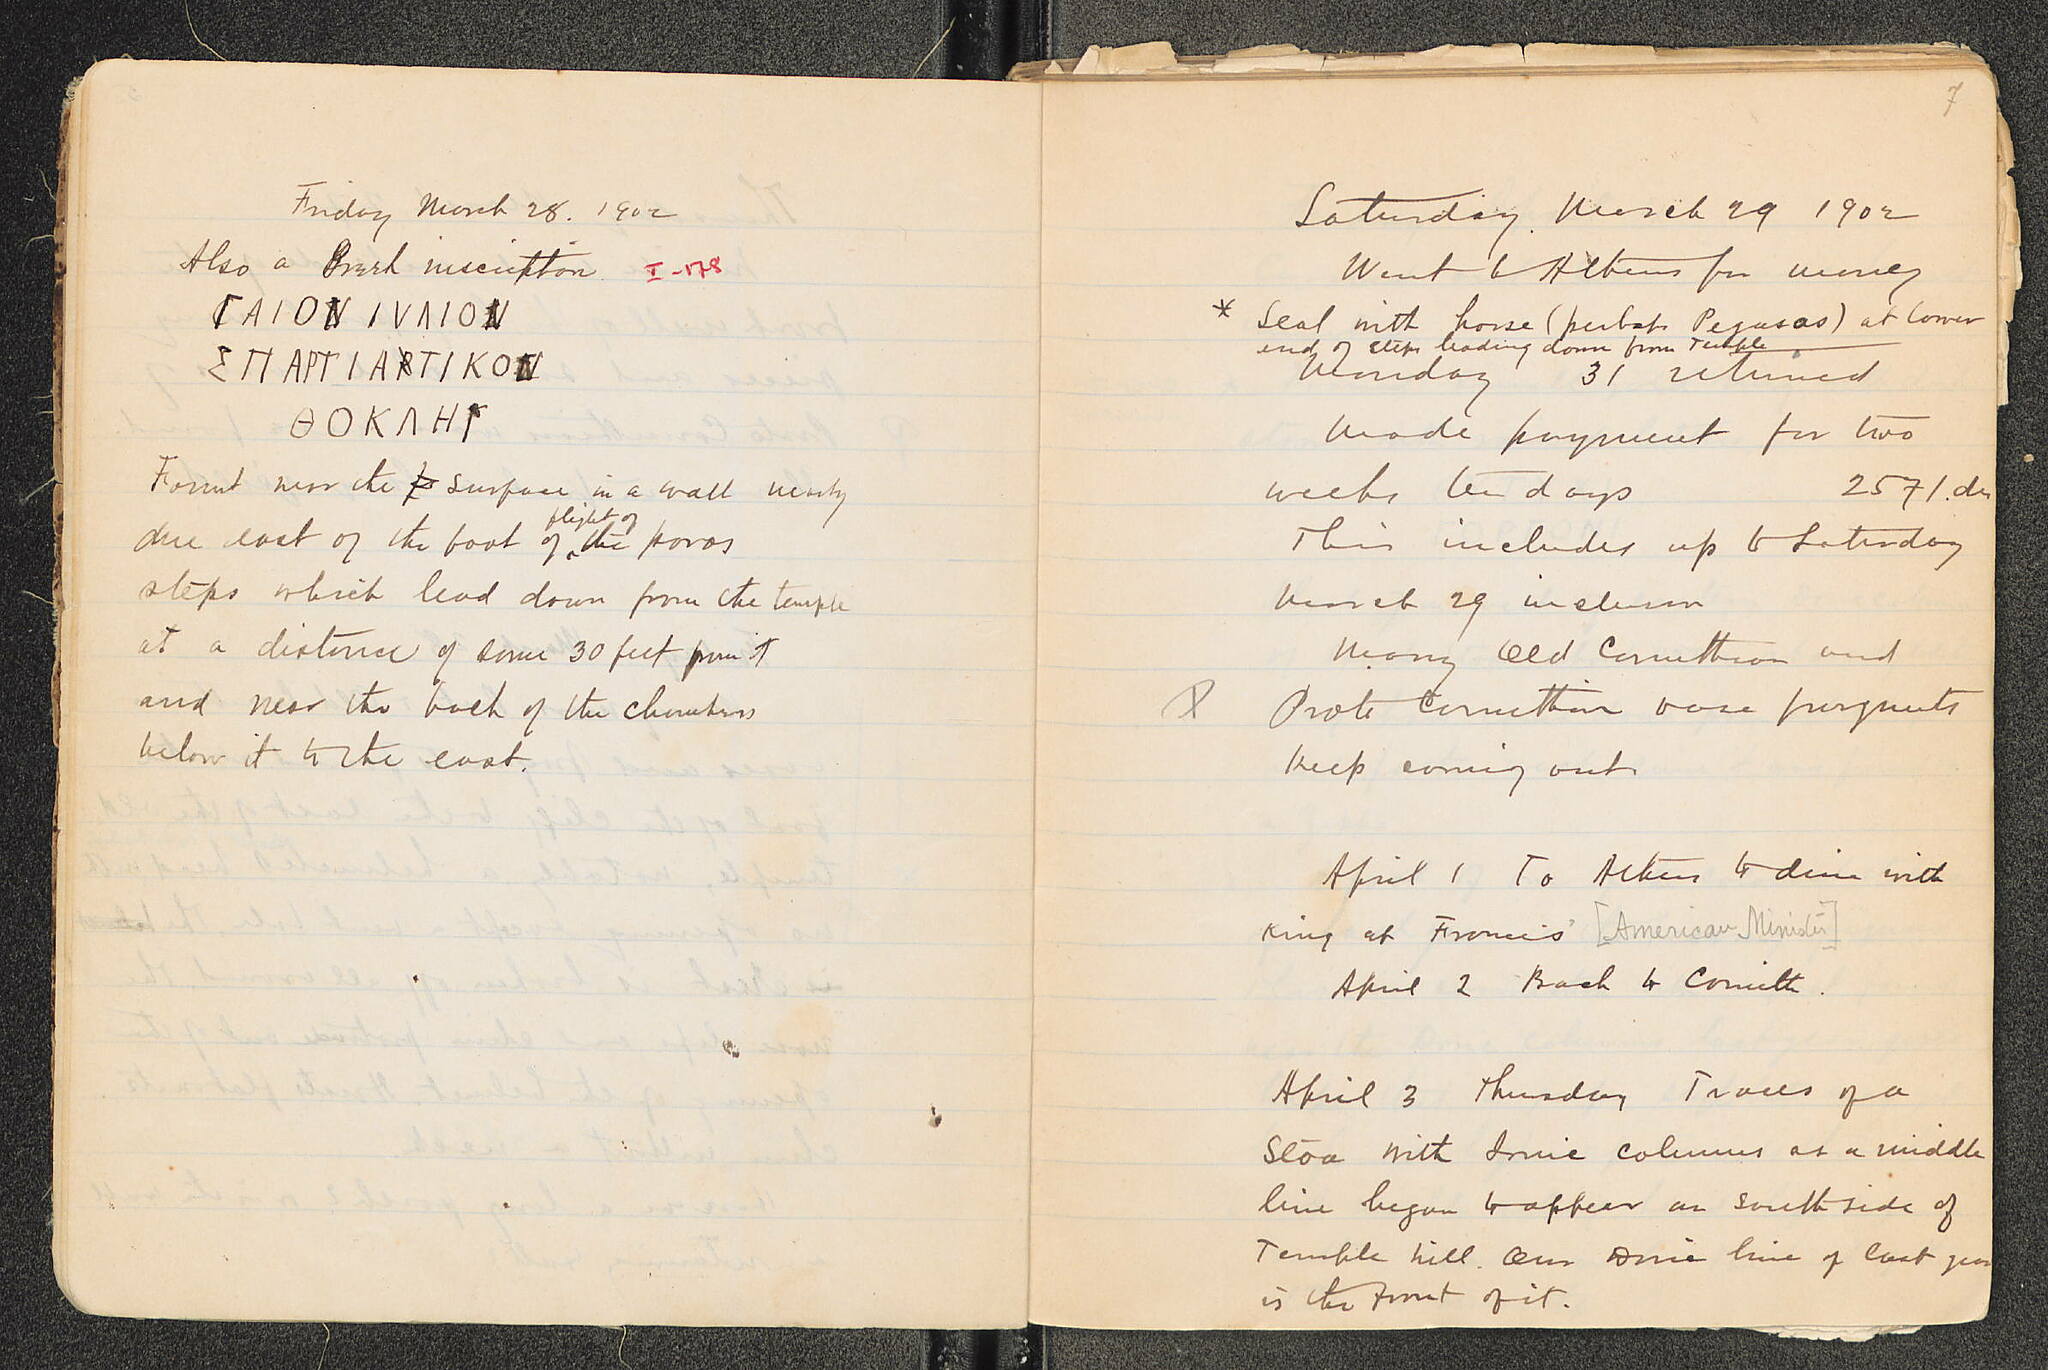 Friday March 28. 1902
Also a Greek inscription I-178
ΓΑΙΟΝ ΙVΛΙΟΝ
ΣΠΑΡΤΙΑΤΙΚΟΝ
ΘΟΚΛΗΓ
Found near the surface in a wall nearly
due east of the foot of flight of the poros
steps which lead down from the temple
at a distance of some 30 feet from it
and near the back of the chambers
below it to the east.
7
Saturday March 29 1902
Went to Athens for money
* Seal with horse (perhaps Pegasos) at lower
end of steps leading down from Temple
Monday 31 returned
Made payment for two
weeks ten days 2571.dr
This includes up to Saturday
March 29 inclusive
Many Old Corinthian and
Proto Corinthian vase fragments
keep coming out
April 1 To Athens to dine with
King at Francis' [American Minister]
April 2 Back to Corinth.
April 3 Thursday Traces of a
Stoa with Ionic columns as a middle
line began to appear on south side of
Temple hill. Our Doric line of last year
is the Front of it.